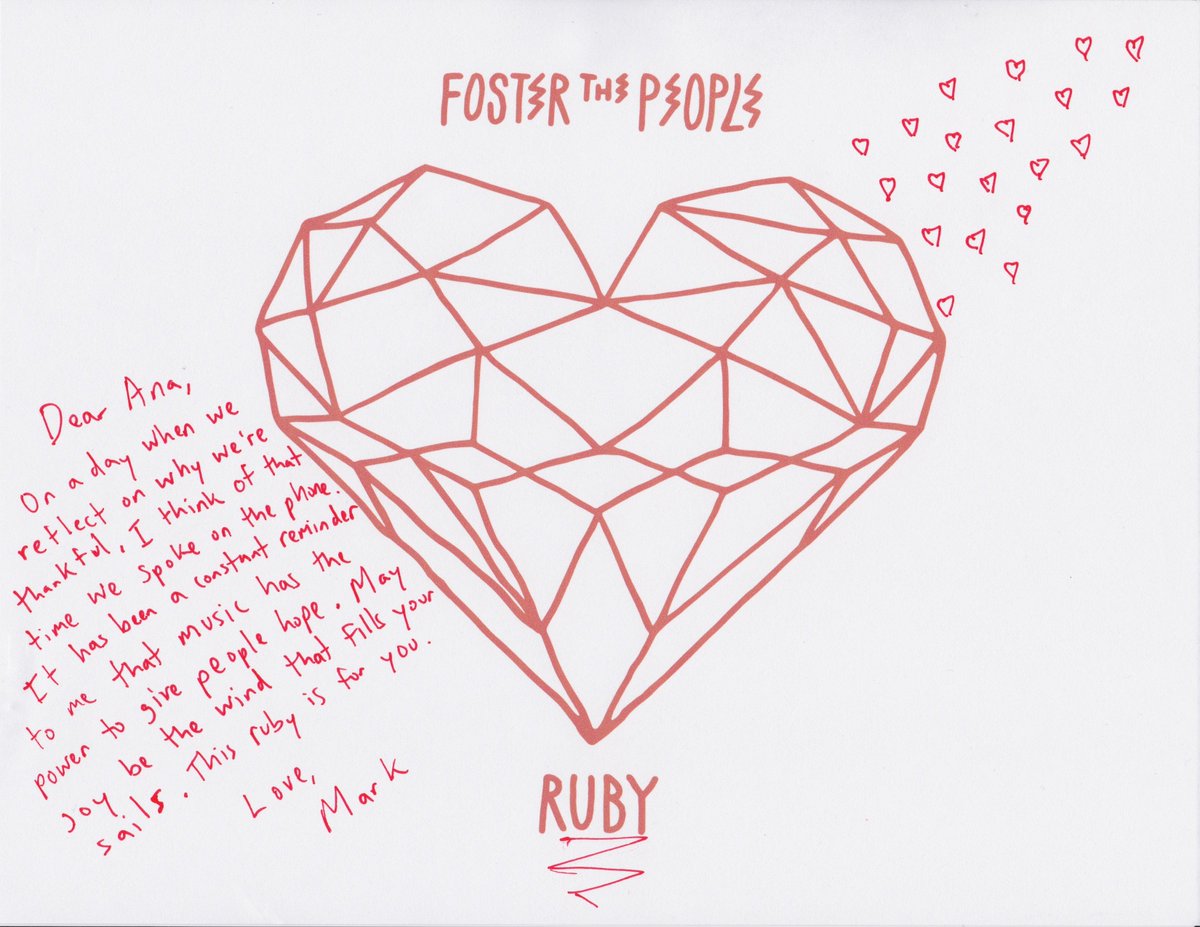 FOSTER THE PEOPLE
Dear Ana,
On a day when we
reflect on why we're
thankful, I think of that
time we spoke on the phone.
It has been a constant reminder
to me that music has the
power to give people hope. May
Joy be the wind that fills your
sails. This ruby is for you.
Love,
Mark
RUBY